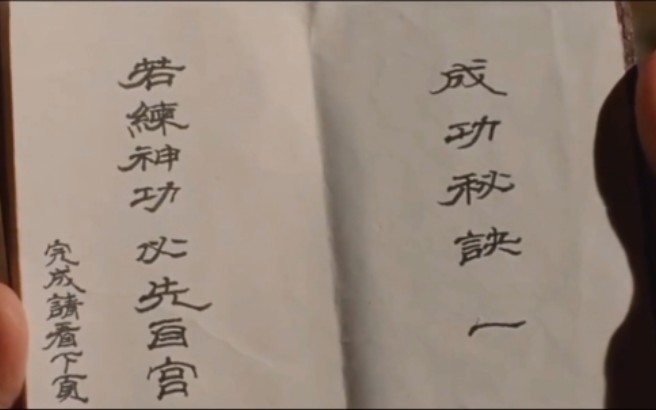 成功秘訣 一
若練神功 必先自宮
完成請看下頁